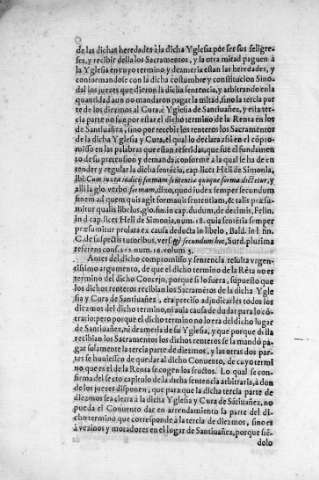 de las dichas heredades à la dicha Yglesia por ser sus feligre-
ses, y recibir della los Sacramentos, y la otra mitad paguen à
la Yglesia en cuyo termino, y dezmeria estan las heredades, y
conformandose con la dicha costumbre y constitucion Sino-
dal los juezes que dieron la dicha sentencia, y arbitrando en la
quantidad aun no mandaron pagar la mitad, sino la tercia par
te de los diezmos al Cura, è Yglesia de Santiuañez, y esta ter
cia parte no fue por estar el dicho termino de la Renta en los
de Santiuañez, sino por recebir los renteros los Sacramentos
de la dicha Yglesia y Cura, el qual lo declara assi en el cõpro-
misso en las palabras que estan referidas, que fue el fundamen
to de su pretension y demanda, conforme à la qual se ha de en
tender y regular la dicha sentecia, cap. licet Heli de Simonia,
ibi: Cum iuxta iudicis formam sententiæ quoque forma dictetur, y
alli la glo. verbo formam, dixo, quod iudex semper secundum
finem ad quem quis agit formauit sententiam, & talis præsu-
mitur qualis libelus, glo. fin. in cap. dudum, de decimis, Felin.
in d. cap. licet Heli de Simonia, num. 18. quia sententia semper
præsumitur prolata ex causa deducta in libelo, Bald. in l. fin.
C. de suspectis tutoribus, vers. secundum hoc, Surd. plurima
referens conf. num. 18. volum. 3.
Antes del dicho compromisso y sentencia resulta vrgen-
tissimo argumento, de que el dicho termino de la Rẽta no es
termino del dicho Concejo, porque si lo fuera, supuesto que
los dichos renteros recibian los Sacramẽtos de la dicha Ygle
sia y Cura de Santiuañez, era preciso adjudicarles todos los
diezmos del dicho termino, ni auia causa de dudar para lo cõ-
trario; pero porque el dicho termino no lo era del dicho lugar
de Santiuañez, ni dezmeria de su Yglesia, y que porque della
recibian los Sacramentos los dichos renteros se la mandò pa-
gar solamente la tercia parte de diezmos, y las otras dos par-
tes se huuiessen de quedar al dicho Conuento, de cuyo termi
no que es el de la Renta se cogen los fructos. Lo qual se con-
firma del sexto capitulo de la dicha sentencia arbitraria, à don
de los juezes disponen, que para que la dicha tercia parte de
diezmos sea cierta à la dicha Yglesia y Cura de Sãtiuañez, no
pueda el Conuento dar en arrendamiento la parte del di-
cho termino que corresponde à la tercia de diezmos, sino es
à vezinos y moradores en el lugar de Santiuañez, porque siẽ-
dolo